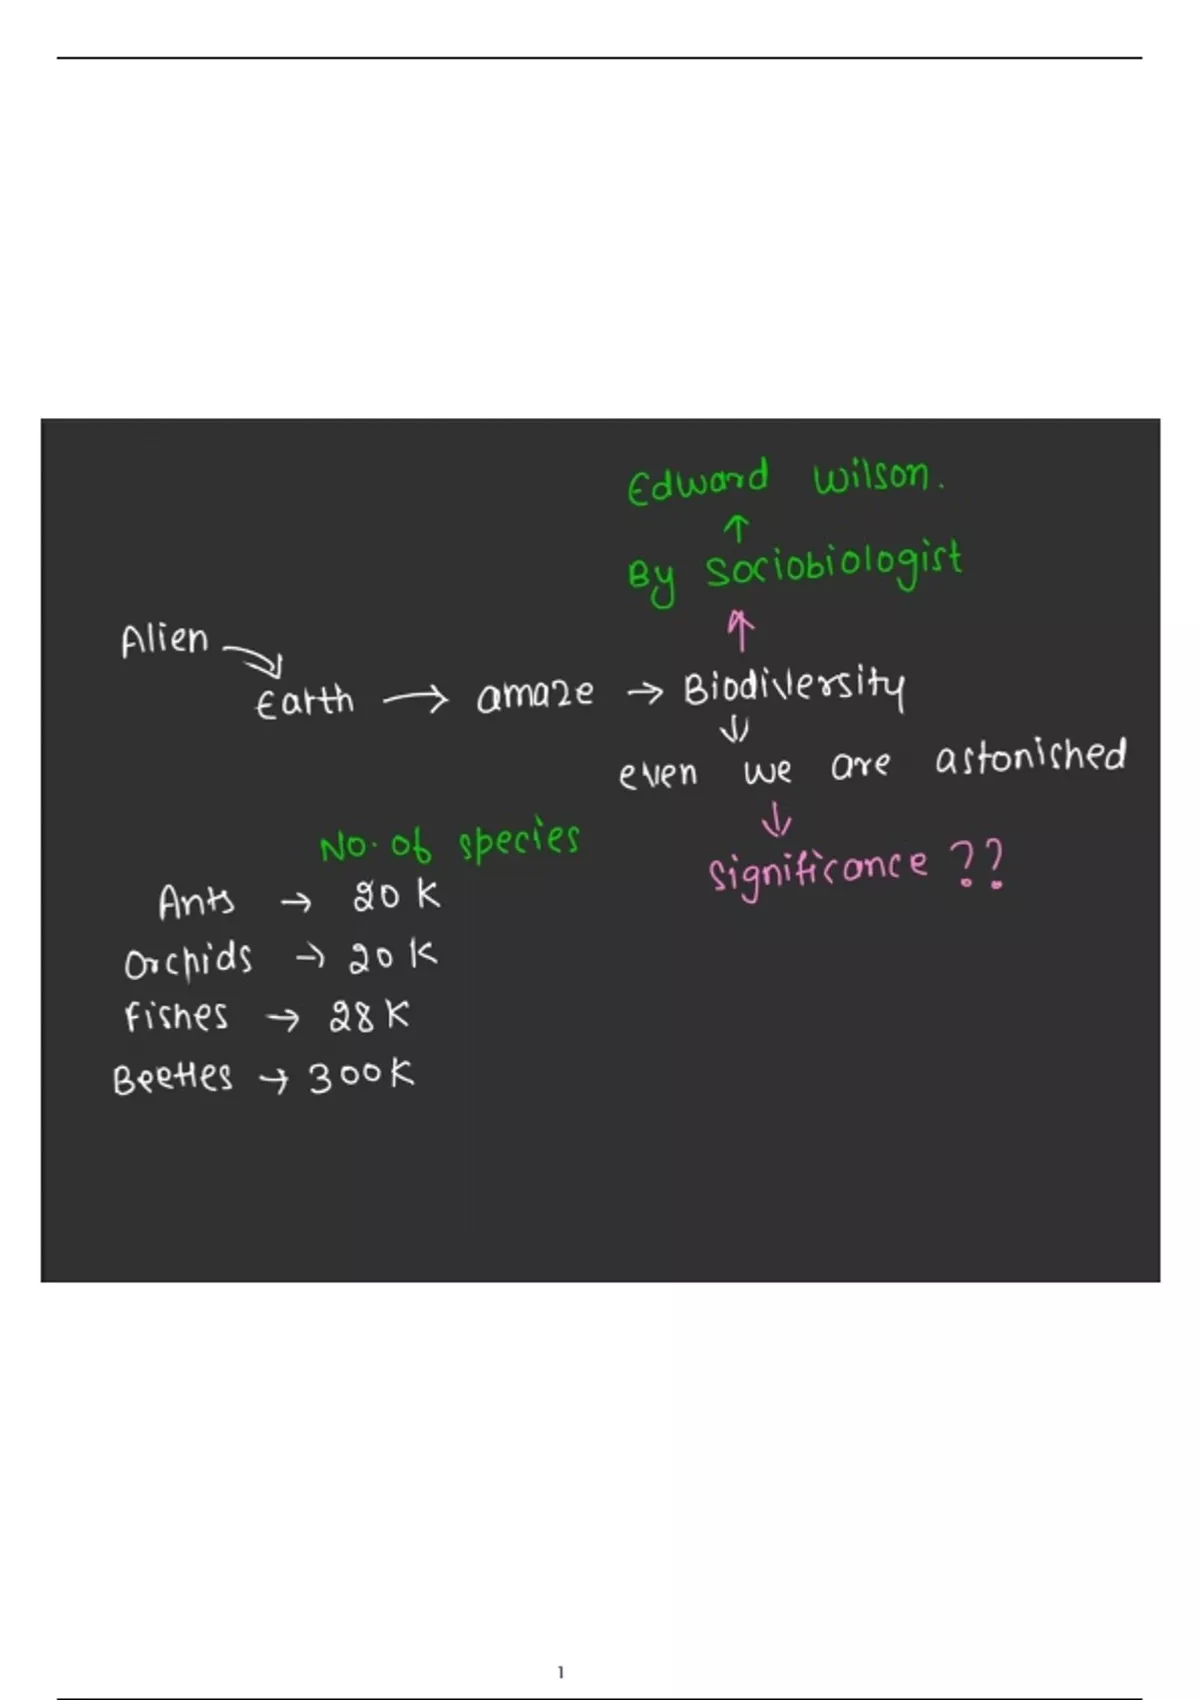 Edward Wilson.
↑
By Sociobiologist
↑
Alien
Earth → amaze → Biodiversity
↓
even we are astonished
↓
Significance ??
No. of species
Ants → 20 K
Orchids → 20 K
Fishes → 28 K
Beetles → 300K
1